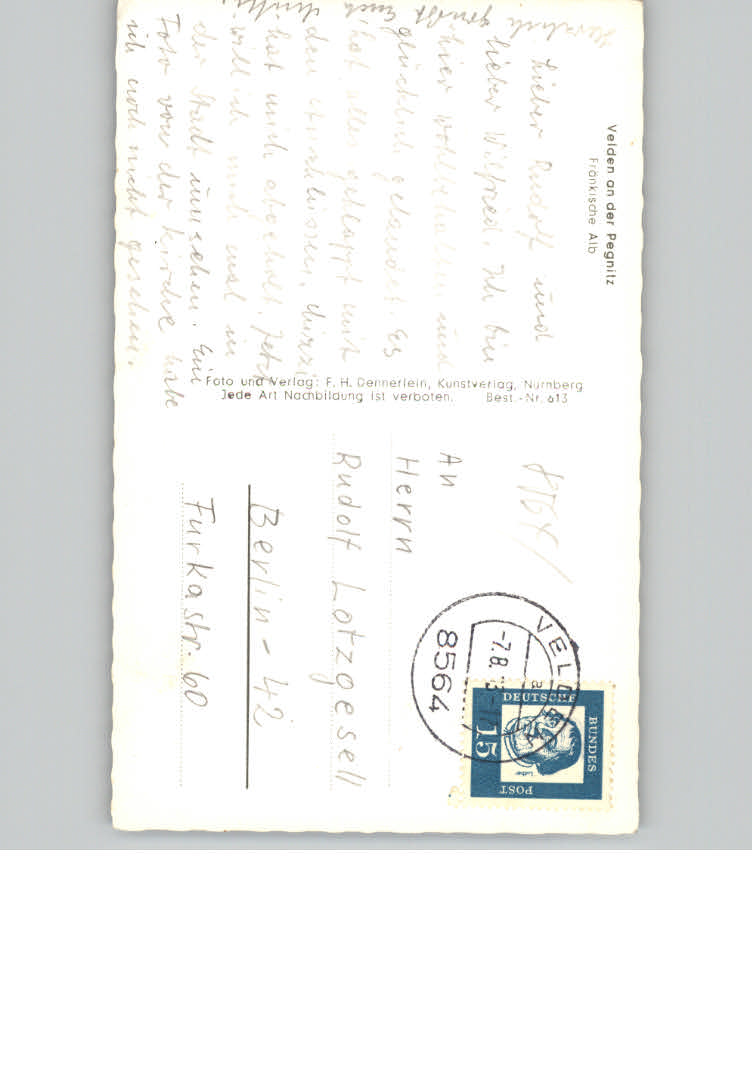 Velden an der Pegnitz
Fränkische Alb
Lieber Rudolf und
lieber Wilfried. Ich bin
hier wohlbehalten und
glücklich gelandet. Es
hat alles geklappt mit
den Anschlüssen,
hat mich abgeholt. Jetzt
will ich mal in
der Stadt umsehen. Ein
Foto von der Kirche habe
ich noch nicht gesehen.
Herzlich grüßt Euch
Foto und Verlag: F. H. Dennerlein, Kunstverlag, Nürnberg
Jede Art Nachbildung ist verboten. Best.-Nr. 613
An
Herrn
Rudolf Lotzgesell
Berlin-42
Furkastr. 60
VELDEN
-7.8.
8564
DEUTSCHE
BUNDES
POST
15
Luther